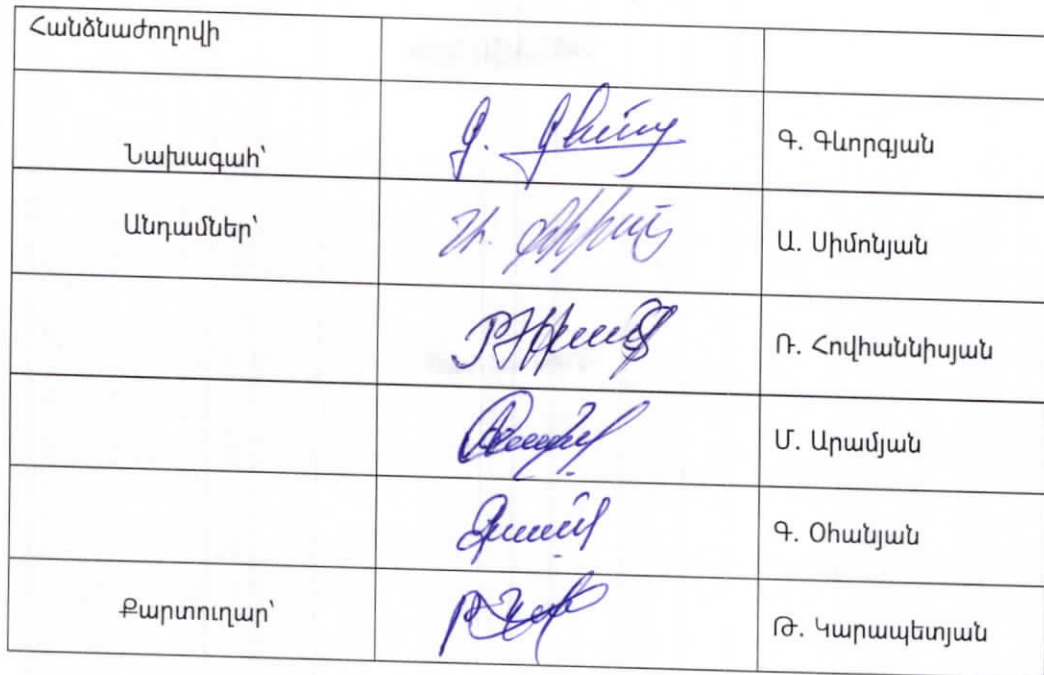 Հանձնաժողովի
Նախագահ՝ Գ. Գևորգյան
Անդամներ՝ Ա. Սիմոնյան
Ռ. Հովհաննիսյան
Մ. Արամյան
Գ. Օհանյան
Քարտուղար՝ Թ. Կարապետյան